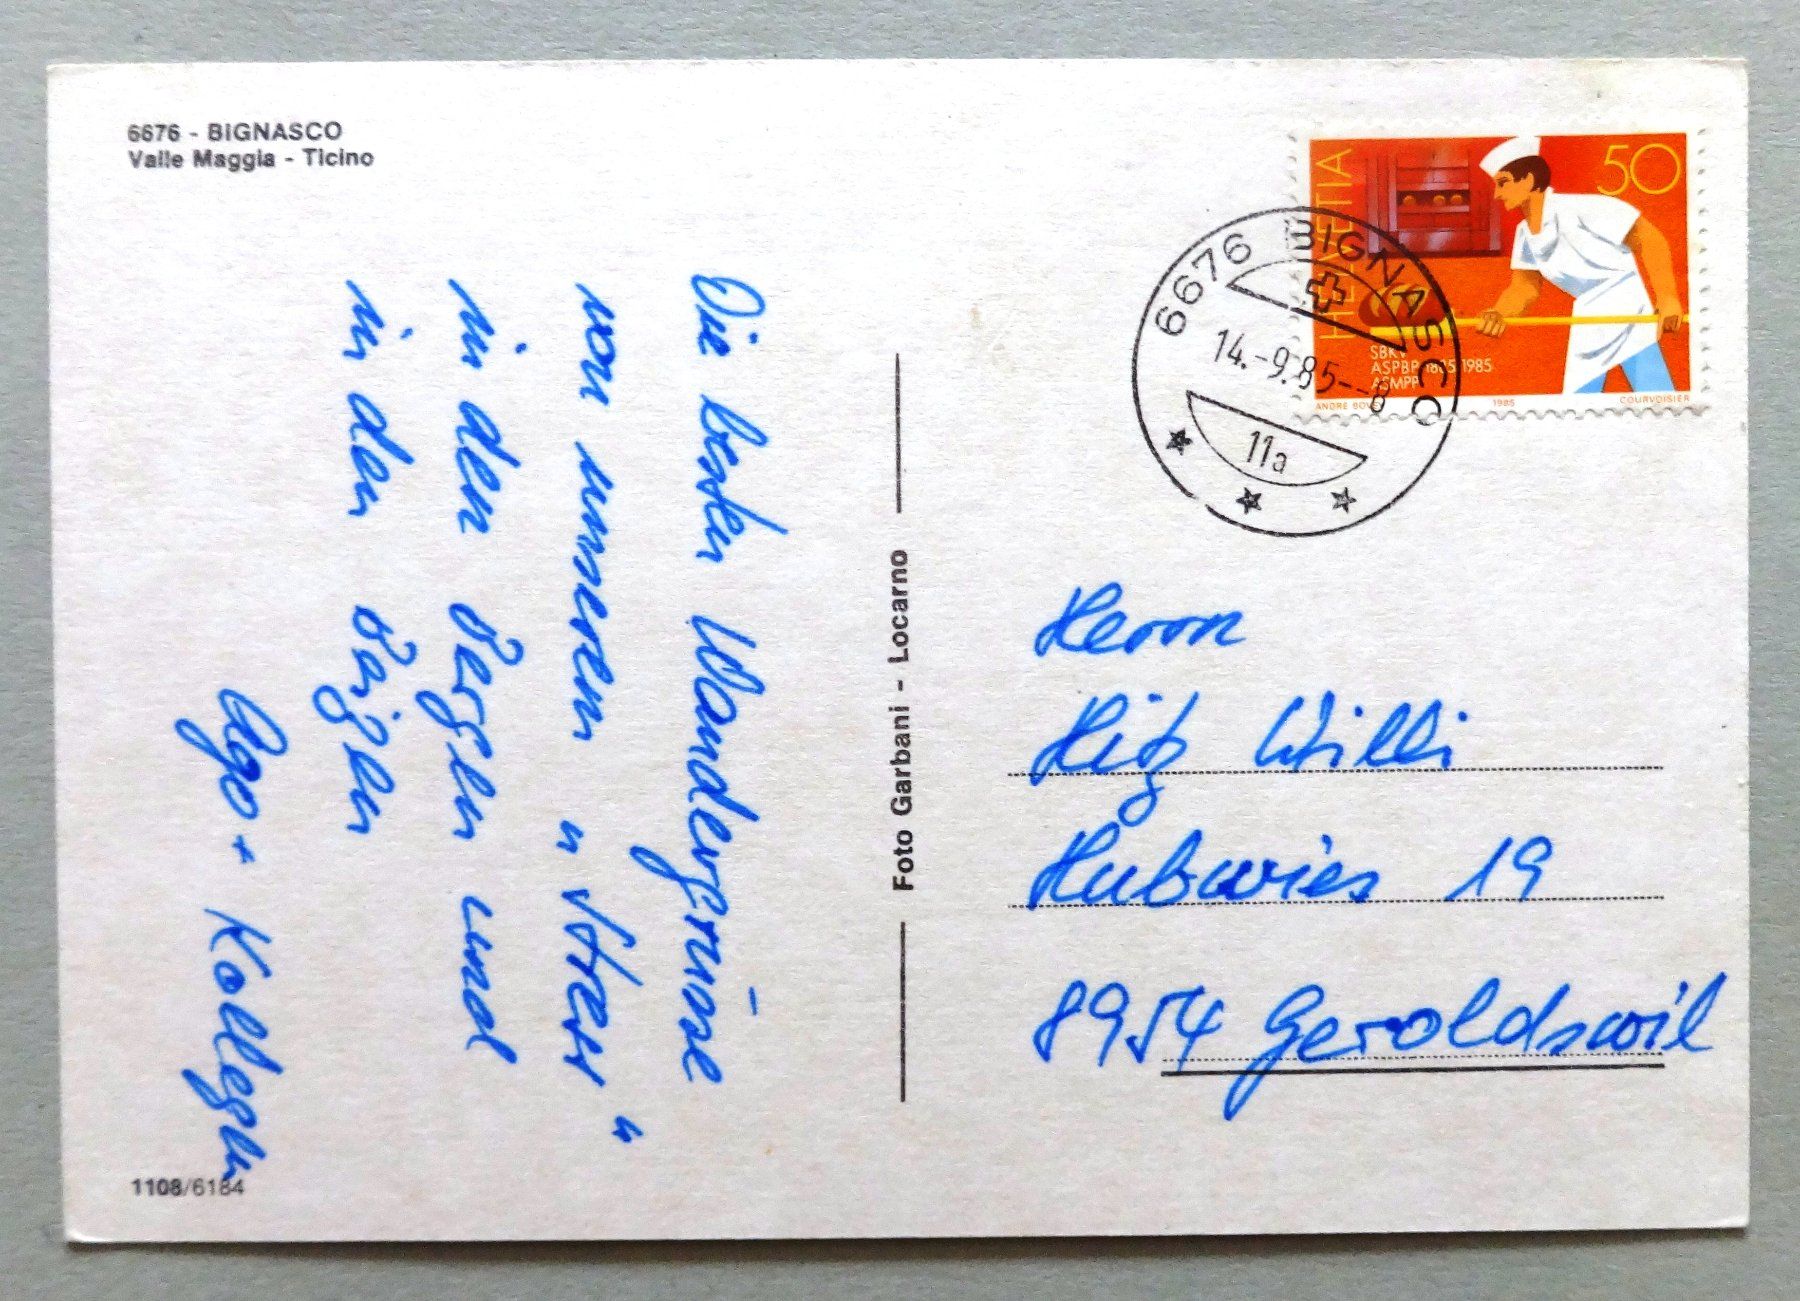 6676 - BIGNASCO
Valle Maggia - Ticino
Die besten Wandergrüsse
von unserem "Stress"
in den Bergen und
in den Büjlen
Ago + Kollegen
1108/6184
Foto Garbani - Locarno
HELVETIA
50
SBKV
ASPBP 1885 1985
ASMPP
ANDRÉ BOVEY 1985 COURVOISIER
6676 BIGNASCO
14.-9.85--8
11a
Herrn
Hitz Willi
Hubwies 19
8954 Geroldswil